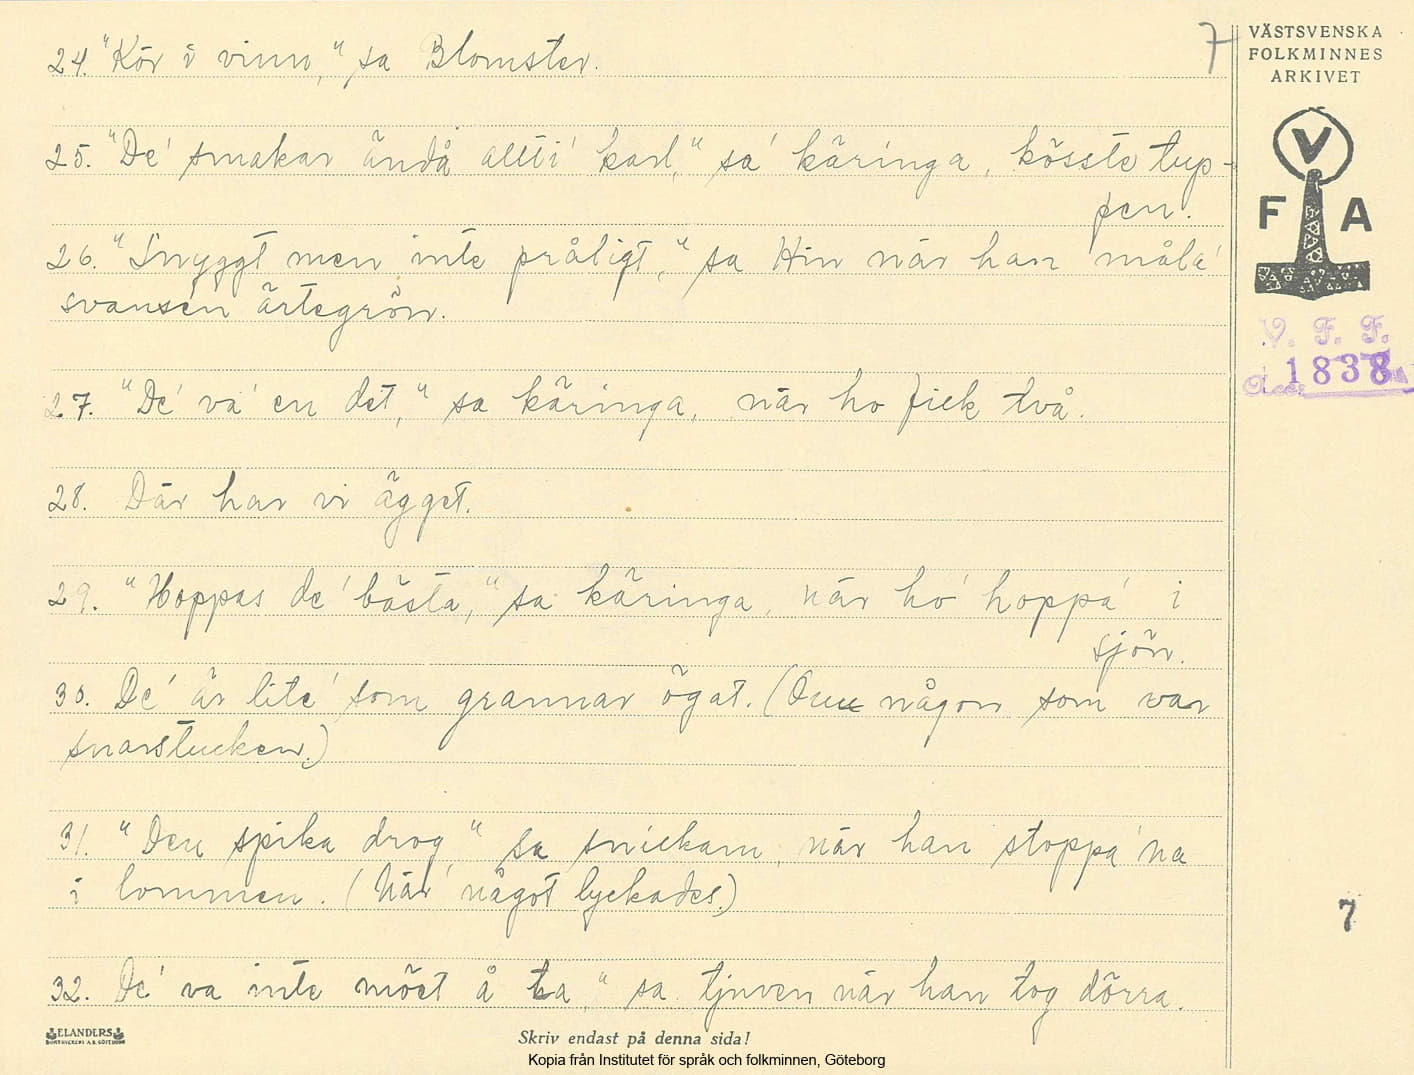 7
VÄSTSVENSKA
FOLKMINNES
ARKIVET
24. "Kör i vinn," sa Blomster.
25. "De' smakar ändå allti' karl," sa' käringa, kösste tup-
pen.
26. "Snyggt men inte pråligt," sa Hin när han måla'
svansen ärtegrön.
27. "De' va' en det," sa käringa, när ho fick två.
28. Där har vi ägget.
29. "Hoppas de' bästa," sa käringa, när ho hoppa' i
sjön.
30. De' är lite' som grannar ögat. (Om någon som var
snarstucken.)
31. "Den spika drog," sa snickarn, när han stoppa 'na
i lommen. (När något lyckades.)
32. De' va inte möet å ta," sa tjuven när han tog dörra.
V
F A
V. F. F.
Acc. 1838
7
ELANDERS
BOKTRYCKERI A.B. GÖTEBORG
Skriv endast på denna sida!
Kopia från Institutet för språk och folkminnen, Göteborg